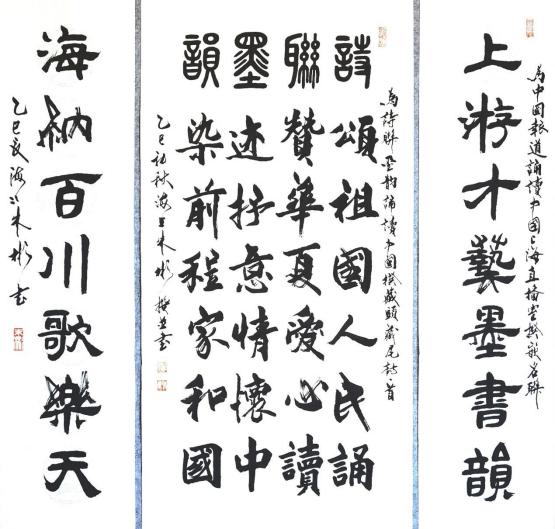 為中國報道誦讀中國上海直播室撰嵌名聯
上游才藝墨書韻
為詩聯墨韵誦讀中國撰藏頭藏尾詩一首
詩頌祖國人民誦
聯贊華夏愛心讀
墨迹抒意情懷中
韻染前程家和國
乙巳初秋海上朱彬撰並書
海納百川歌樂天
乙巳夏海上朱彬书